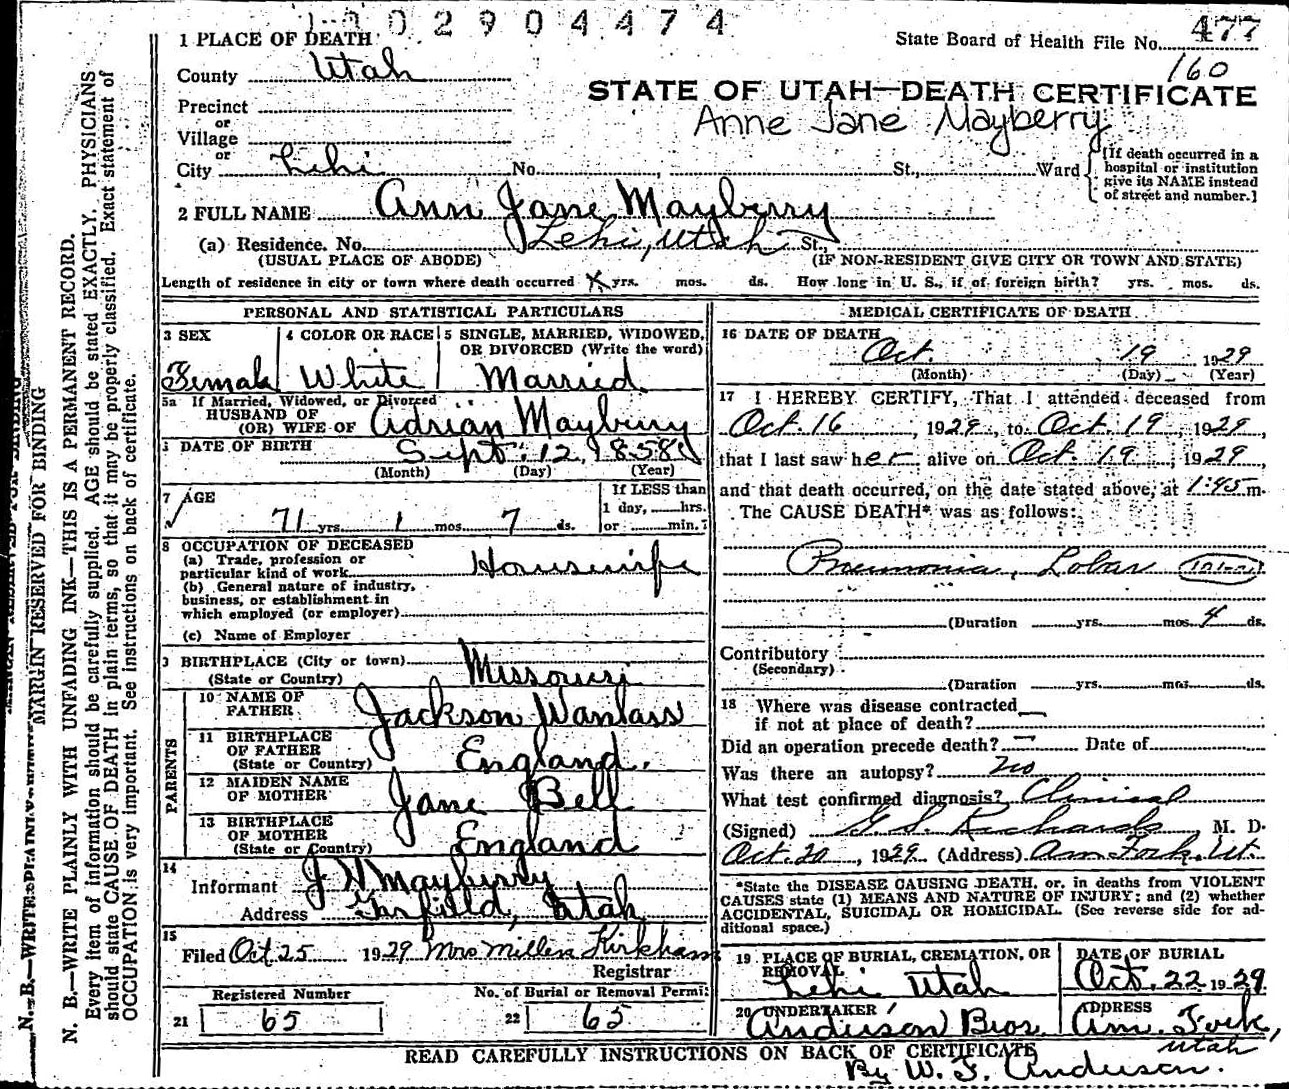 1302904474
1 PLACE OF DEATH
State Board of Health File No. 477
160
County Utah
STATE OF UTAH—DEATH CERTIFICATE
Precinct
or
Village
or
Anne Jane Mayberry
City Lehi No. St., Ward
[If death occurred in a hospital or institution give its NAME instead of street and number.]
2 FULL NAME Ann Jane Mayberry
(a) Residence. No. Lehi, Utah St.,
(USUAL PLACE OF ABODE) (IF NON-RESIDENT GIVE CITY OR TOWN AND STATE)
Length of residence in city or town where death occurred yrs. mos. ds. How long in U. S., if of foreign birth? yrs. mos. ds.
PERSONAL AND STATISTICAL PARTICULARS
3 SEX Female
4 COLOR OR RACE White
5 SINGLE, MARRIED, WIDOWED, OR DIVORCED (Write the word) Married
5a If Married, Widowed, or Divorced
HUSBAND OF
(OR) WIFE OF Adrian Mayberry
DATE OF BIRTH Sept. 12, 1858
(Month) (Day) (Year)
7 AGE
71 yrs. 1 mos. 7 ds.
If LESS than 1 day, hrs. or min.?
8 OCCUPATION OF DECEASED
(a) Trade, profession or particular kind of work Housewife
(b) General nature of industry, business, or establishment in which employed (or employer)
(c) Name of Employer
9 BIRTHPLACE (City or town)
(State or Country) Missouri
PARENTS
10 NAME OF FATHER Jackson Wanlass
11 BIRTHPLACE OF FATHER (State or Country) England.
12 MAIDEN NAME OF MOTHER Jane Bell
13 BIRTHPLACE OF MOTHER (State or Country) England
14
Informant J W Mayberry
Address Garfield, Utah
15
Filed Oct 25 1929 Mrs Millen Kirkham
Registrar
Registered Number
21 65
No. of Burial or Removal Permit
22 65
MEDICAL CERTIFICATE OF DEATH
16 DATE OF DEATH
Oct. 19 1929
(Month) (Day) (Year)
17 I HEREBY CERTIFY, That I attended deceased from
Oct. 16, 1929, to Oct. 19, 1929,
that I last saw her alive on Oct. 19, 1929,
and that death occurred, on the date stated above, at 1:45 m.
The CAUSE DEATH* was as follows:
Pneumonia, Lobar
(Duration yrs. mos. 4 ds.
Contributory
(Secondary)
(Duration yrs. mos. ds.
18 Where was disease contracted
if not at place of death?
Did an operation precede death? Date of
Was there an autopsy? no
What test confirmed diagnosis? Clinical
(Signed) G. S. Richards M. D.
Oct. 20, 1929 (Address) Am Fork, Ut.
*State the DISEASE CAUSING DEATH, or, in deaths from VIOLENT CAUSES state (1) MEANS AND NATURE OF INJURY; and (2) whether ACCIDENTAL, SUICIDAL OR HOMICIDAL. (See reverse side for additional space.)
19 PLACE OF BURIAL, CREMATION, OR REMOVAL Lehi Utah
DATE OF BURIAL Oct. 22 1929
20 UNDERTAKER Anderson Bros.
ADDRESS Am. Fork, Utah
READ CAREFULLY INSTRUCTIONS ON BACK OF CERTIFICATE
By W. F. Anderson.
MARGIN RESERVED FOR BINDING
N. B.—WRITE PLAINLY WITH UNFADING INK—THIS IS A PERMANENT RECORD.
Every item of information should be carefully supplied. AGE should be stated EXACTLY. PHYSICIANS
should state CAUSE OF DEATH in plain terms, so that it may be properly classified. Exact statement of
OCCUPATION is very important. See instructions on back of certificate.